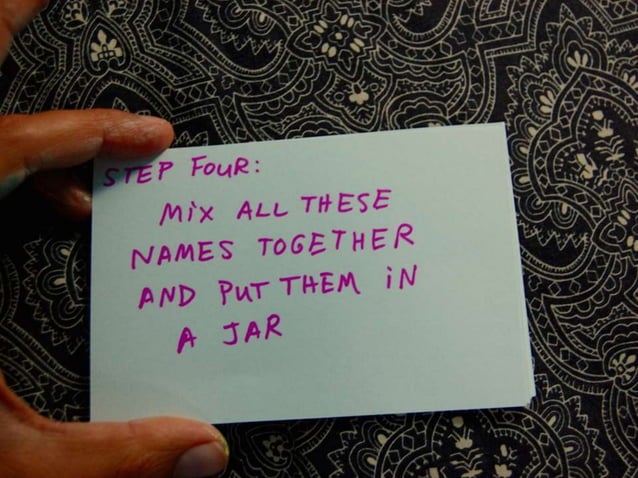 STEP FOUR:
MiX ALL THESE
NAMES TOGETHER
AND PUT THEM iN
A JAR